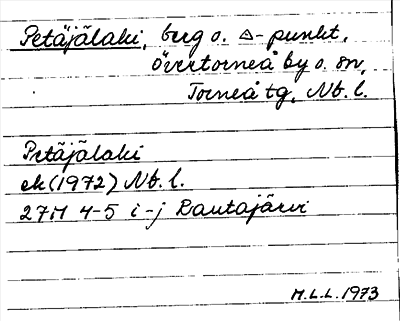 Petäjälaki, berg o. △-punkt,
Övertorneå by o. sn,
Torneå tg, Nb. l.
Petäjälaki
ek (1972) Nb. l.
27M 4-5 i-j Rautajärvi
M.L.L. 1973